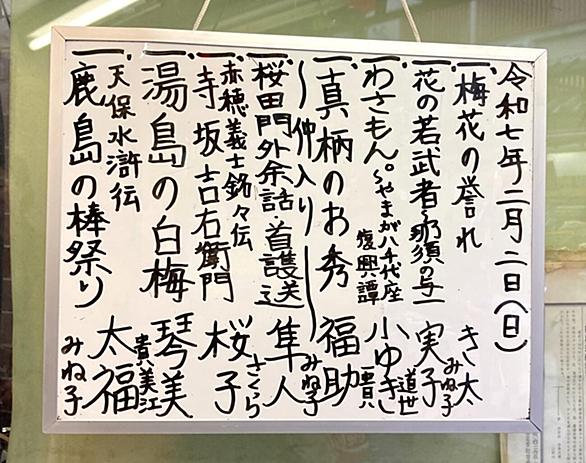 令和七年二月二日(日)
一、梅花の誉れ き太
みね子
一、花の若武者〜那須の与一 実子
道世
一、わさもん。〜やまが八千代座
復興譚 小ゆき
一、真柄のお秀 福助
みね子
〜仲入り〜
一、桜田門外余話・首護送 隼人
さくら
一、赤穂義士銘々伝
寺坂吉右衛門 桜子
一、湯島の白梅 琴美
貴美江
一、天保水滸伝
鹿島の棒祭り 太福
みね子